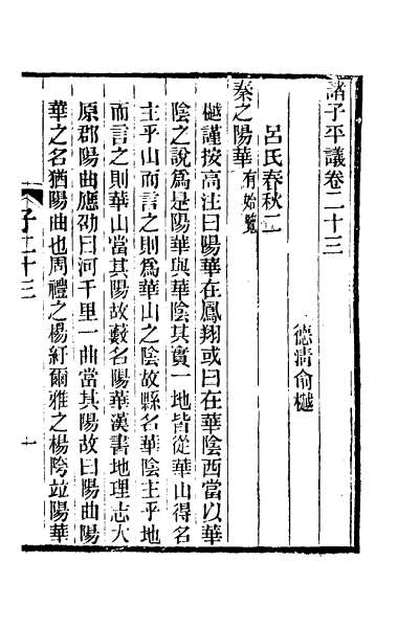 諸子平議卷二十三
德淸俞樾
呂氏春秋二
秦之陽華有始覽
樾謹按高注曰陽華在鳳翔或曰在華陰西當以華
陰之說爲是陽華與華陰其實一地皆從華山得名
主乎山而言之則爲華山之陰故縣名華陰主乎地
而言之則華山當其陽故藪名陽華漢書地理志太
原郡陽曲應劭曰河千里一曲當其陽故曰陽曲陽
華之名猶陽曲也周禮之楊紆爾雅之楊陓竝陽華
子二十三
一